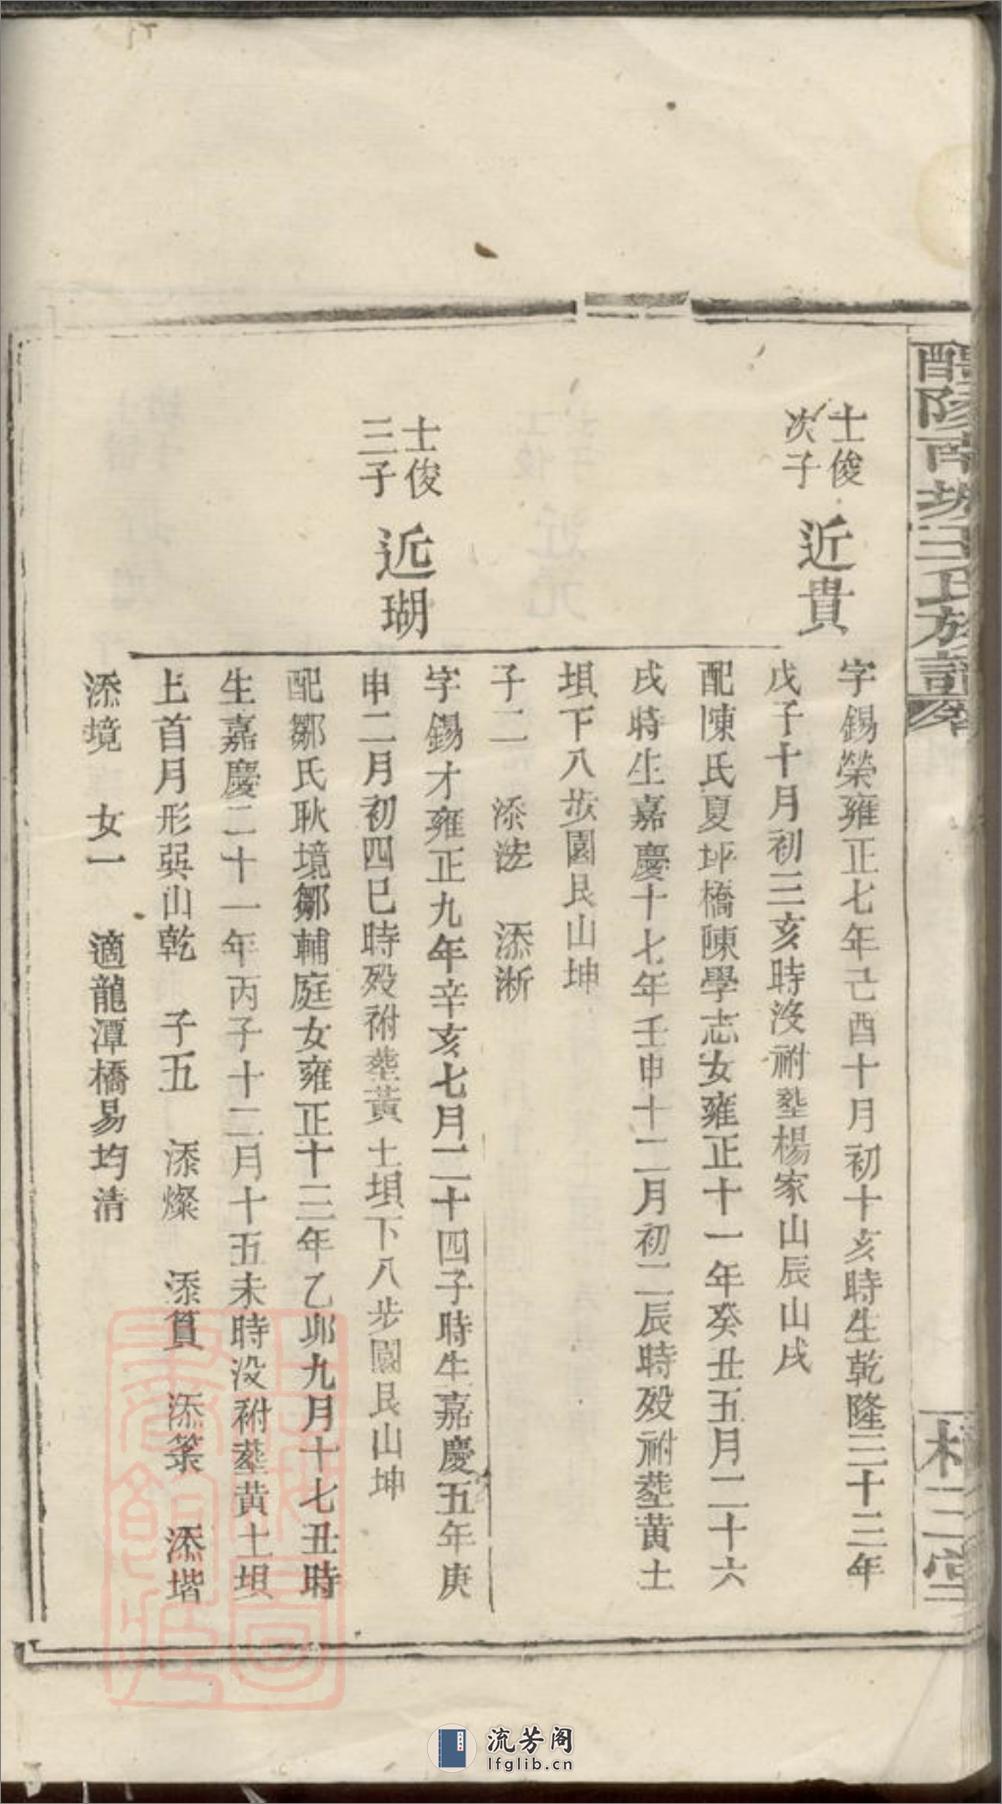 醴陵南城王氏族譜卷
士俊
次子
近貴
字錫榮雍正七年己酉十月初十亥時生乾隆三十三年
戊子十月初三亥時沒祔塟楊家山辰山戌
配陳氏夏坪橋陳學志女雍正十一年癸丑五月二十六
戌時生嘉慶十七年壬申十二月初二辰時歿祔塟黃土
垻下八步園艮山坤
子二 添浤 添淅
士俊
三子
近瑚
字錫才雍正九年辛亥七月二十四子時生嘉慶五年庚
申二月初四巳時歿祔塟黃土垻下八步園艮山坤
配鄒氏耿境鄒輔庭女雍正十三年乙卯九月十七丑時
生嘉慶二十一年丙子十二月十五未時沒祔塟黃土垻
上首月形巽山乾 子五 添燦 添篔 添築 添堦
添境 女一 適龍潭橋易均清
三堂
流芳阁
lfglib.cn